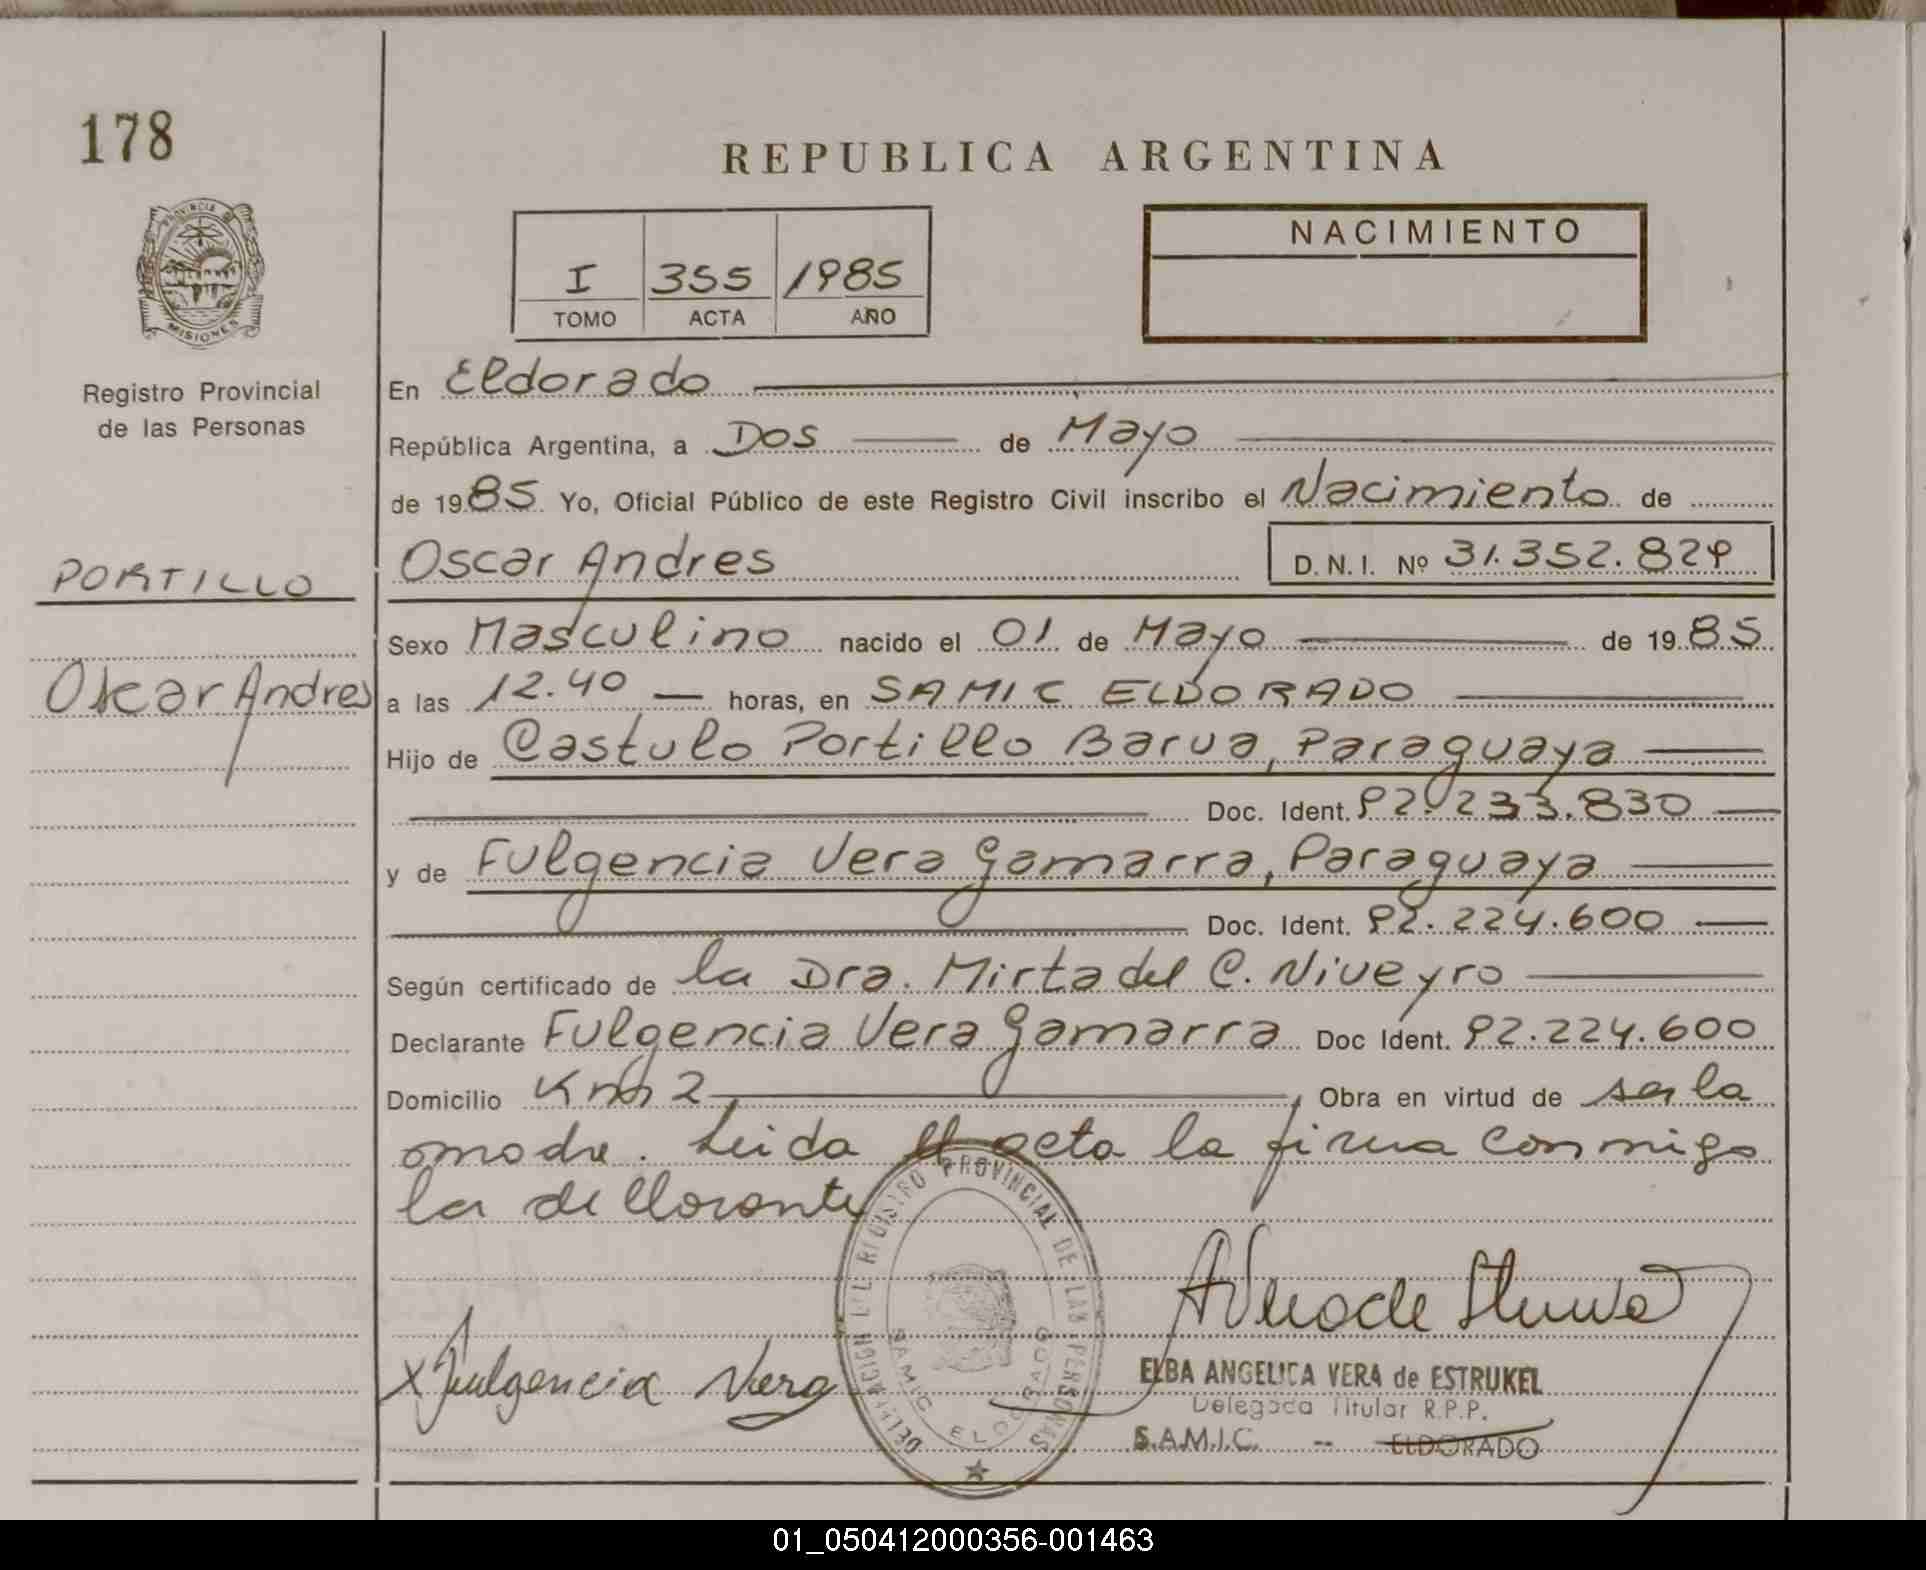 178
REPUBLICA ARGENTINA
PROVINCIA DE
MISIONES
NACIMIENTO
I 355 1985
TOMO ACTA AÑO
Registro Provincial
de las Personas
En Eldorado
República Argentina, a Dos de Mayo
de 1985 Yo, Oficial Público de este Registro Civil inscribo el Nacimiento de
PORTILLO
Oscar Andres D.N.I. Nº 31.352.829
Sexo Masculino nacido el 01 de Mayo de 1985
Oscar Andres
a las 12.40 horas, en SAMIC ELDORADO
Hijo de Castulo Portillo Barua, Paraguaya
Doc. Ident. 92.233.830
y de Fulgencia Vera Gamarra, Paraguaya
Doc. Ident. 92.224.600
Según certificado de la Dra. Mirta del C. Niveyro
Declarante Fulgencia Vera Gamarra Doc Ident. 92.224.600
Domicilio Km 2 Obra en virtud de ser la
madre. Leida el acta la firma conmigo
la declarante
DELEGACION DEL REGISTRO PROVINCIAL DE LAS PERSONAS
SAMIC ELDORADO
X Fulgencia Vera
ELBA ANGELICA VERA de ESTRUKEL
Delegada Titular R.P.P.
S.A.M.I.C. -- ELDORADO
01_050412000356-001463